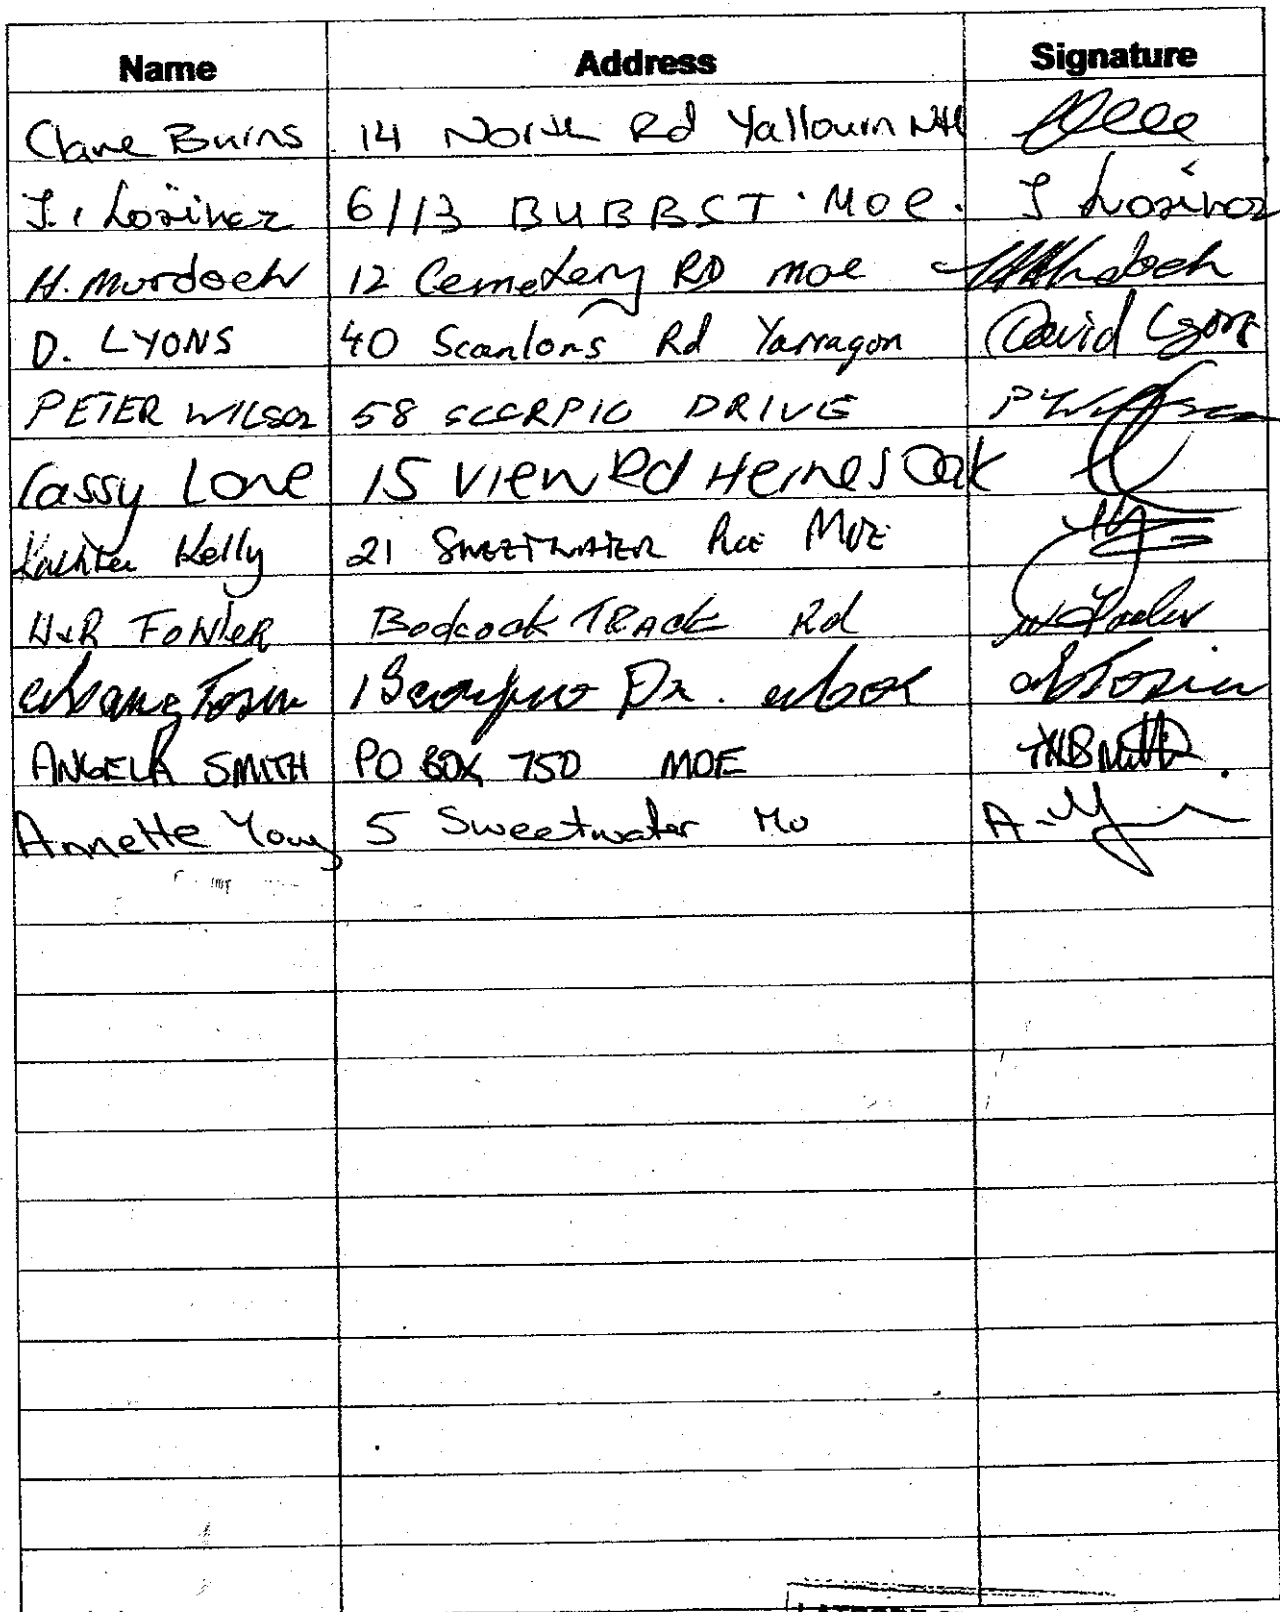 Name Address Signature
Clare Burns 14 North Rd Yallourn Nth
J. Lozinez 6/13 BUBB ST. MOE. J Lozinez
H. Murdoch 12 Cemetery RD moe
D. LYONS 40 Scanlons Rd Yarragon David Lyons
PETER WILSON 58 SCORPIO DRIVE P Wilson
Cassy Lone 15 View Rd Hernes Oak
Kelly 21 SWEETWATER PCE MOE
H & R FOWLER Bodcock TRACK Rd Fowler
Tosin 1 Scorpio Dr. Tosin
ANGELA SMITH PO BOX 750 MOE
Annette Young 5 Sweetwater Mo